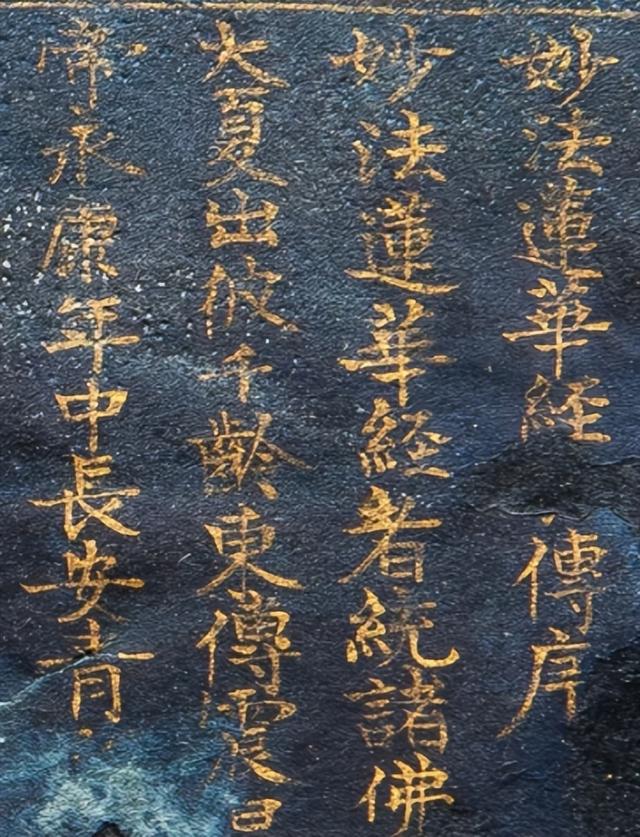 妙法蓮華経 傳序
妙法蓮華経者統諸佛
大夏出彼千齡東傳震旦
帝永康年中長安青